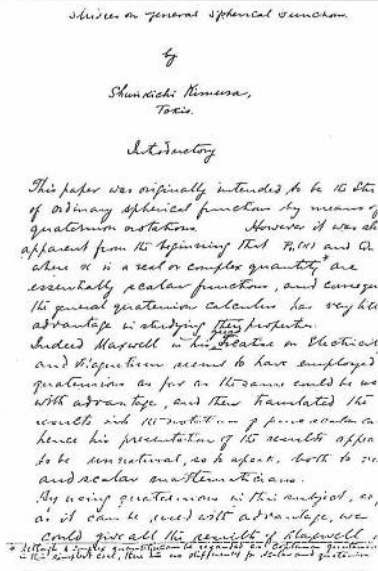 Studies on general Spherical Functions.
by
Shunkichi Kimura,
Tokio.
Introductory
This paper was originally intended to be the Stu
of ordinary spherical functions by means of
quaternion notations. However it was
apparent from the beginning that Pn(x) and Qn
where x is a real or complex quantity* are
essentially scalar functions, and conseque
the general quaternion calculus has very little
advantage in studying their properties.
Indeed Maxwell in his great Treatise on Electricit
and Magnetism seems to have employed
quaternions as far as the same could be us
with advantage, and then translated the
results into the notation of pure scalar
hence his presentation of the results appea
to be unnatural, so to speak, both to
and scalar mathematicians.
By using quaternions in this subject, so
as it can be used with advantage, we
could give all the results of Maxwell
* Although a complex quantity can be regarded as a quaternion
in the simplest case, there is no difference for scalar and quaternion